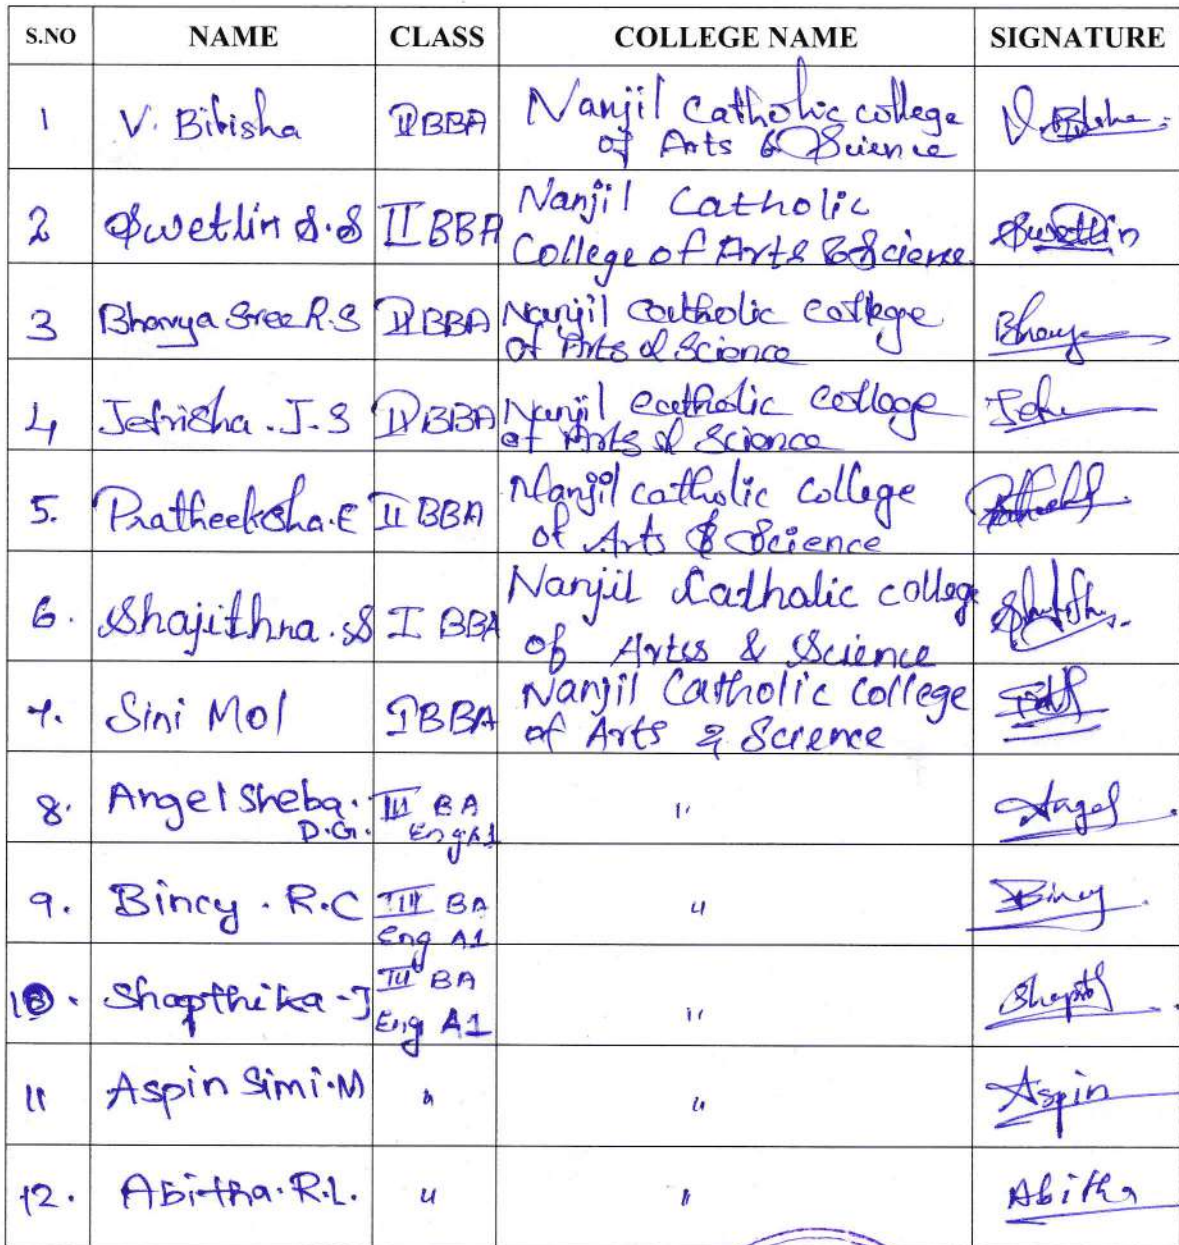 S.NO NAME CLASS COLLEGE NAME SIGNATURE
1 V. Bibisha II BBA Nanjil Catholic college
of Arts & Science
2 Swetlin S.S II BBA Nanjil Catholic
College of Arts & Science Swetlin
3 Bhavya Sree R.S II BBA Nanjil Catholic College
of Arts & Science Bhavya
4 Jefrisha . J. S II BBA Nanjil Catholic College
of Arts & Science
5. Pratheeksha.E II BBA Nanjil catholic college
of Arts & Science
6. Shajithra .S I BBA Nanjil Catholic college
of Arts & Science
7. Sini Mol I BBA Nanjil Catholic College
of Arts & Science
8. Angel Sheba. III BA " Angel
D.G. Eng A1
9. Bincy . R.C III BA " Bincy
Eng A1
10. Shapthika -J III BA "
Eng A1
11 Aspin Simi.M " " Aspin
12. Abitha. R.L. " " Abitha